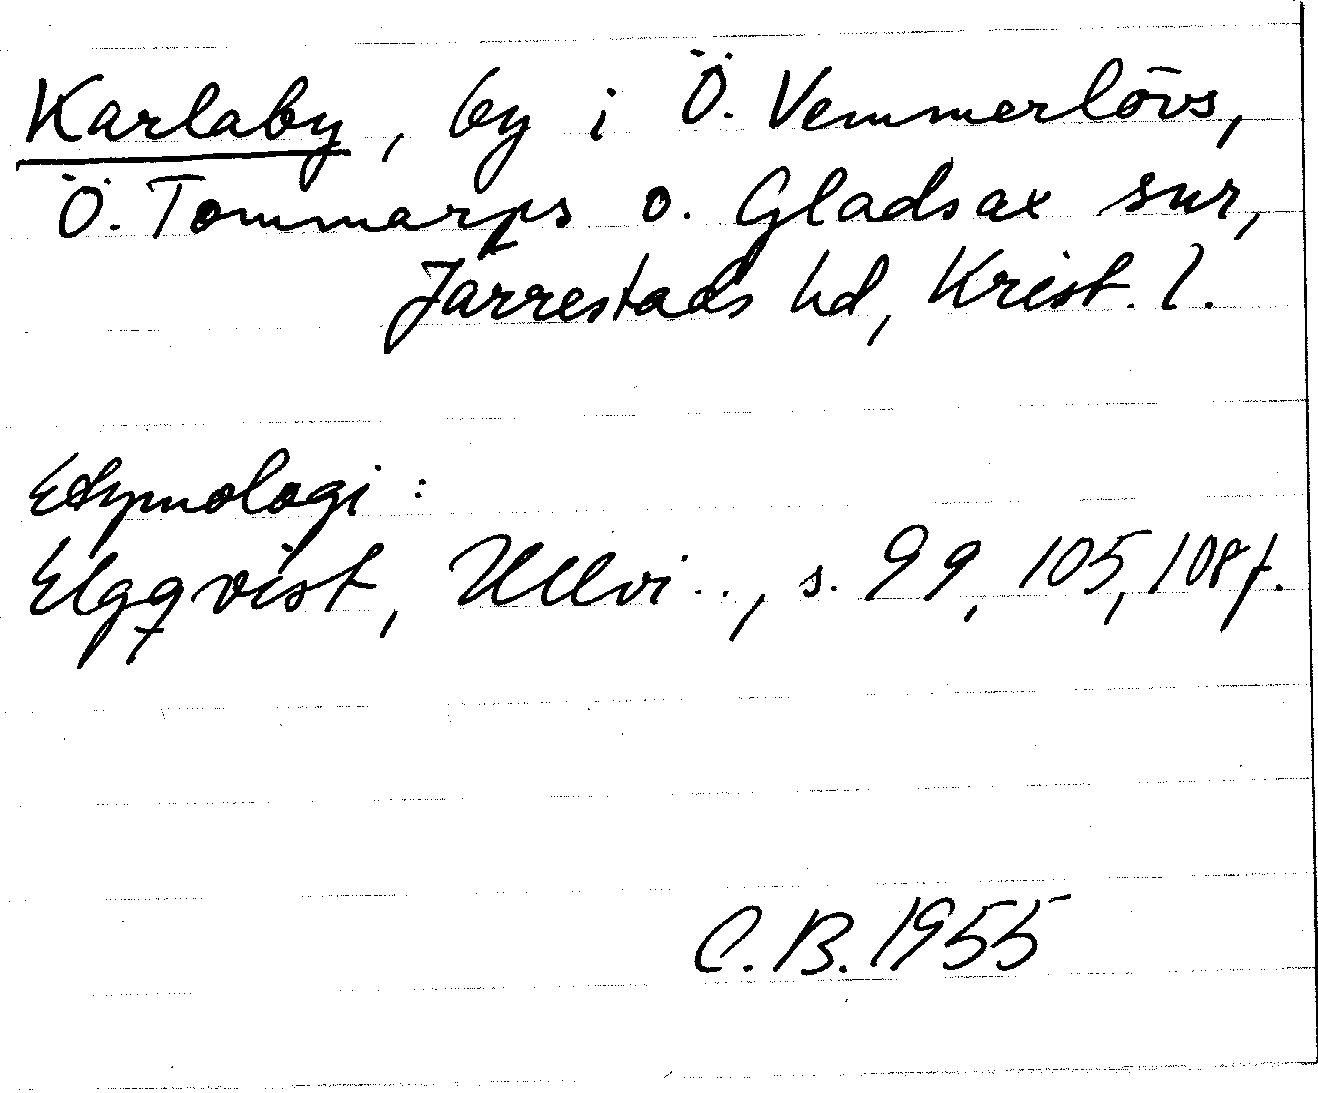 Karlaby, by i Ö. Vemmerlövs,
Ö. Tommarps o. Gladsax snr,
Järrestads hd, Krist. l.
Etymologi:
Elgqvist, Ullvi.., s. 99, 105, 108 f.
C.B. 1955